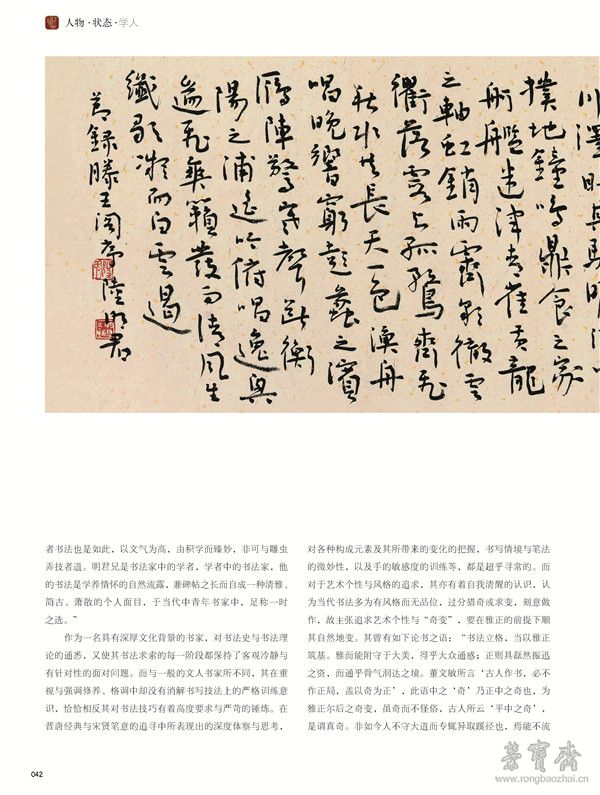 人物·状态·学人
川澤其駭
撲地鐘鳴鼎食之家
舸艦迷津青雀黄龍
之軸虹銷雨霽彩徹雲
衢落霞与孤鶩齊飛
秋水共長天一色漁舟
唱晚響窮彭蠡之濱
雁陣驚寒聲斷衡
陽之浦遥吟俯唱逸興
遄飛爽籟發而清風生
纖歌凝而白雲遏
節録滕王閣序陸明君
者书法也是如此，以文气为高，由积学而臻妙，非可与雕虫
弄技者道。明君兄是书法家中的学者，学者中的书法家，他
的书法是学养情怀的自然流露，兼碑帖之长而自成一种清雅、
简古、萧散的个人面目，于当代中青年书家中，足称一时
之选。”
作为一名具有深厚文化背景的书家，对书法史与书法理
论的通悉，又使其书法求索的每一阶段都保持了客观冷静与
有针对性的面对问题。而与一般的文人书家所不同，其在重
视与强调修养、格调中却没有消解书写技法上的严格训练意
识，恰恰相反其对书法技巧有着高度要求与严苛的锤炼。在
晋唐经典与宋贤笔意的追寻中所表现出的深度体察与思考，
对各种构成元素及其所带来的变化的把握，书写情境与笔法
的微妙性，以及手的敏感度的训练等，都是超乎寻常的。而
对于艺术个性与风格的追求，其亦有着自我清醒的认识，认
为当代书法多为有风格而无品位，过分猎奇或求变，刻意做
作，故主张追求艺术个性与“奇变”，要在雅正的前提下顺
其自然地变。其曾有如下论书之语：“书法立格，当以雅正
筑基。雅而能附守于大美，得乎大众通感；正则具磊然振迅
之资，而通乎骨气洞达之境。董文敏所言‘古人作书，必不
作正局，盖以奇为正’，此语中之‘奇’乃正中之奇也，为
雅正尔后之奇变，虽奇而不怪俗，古人所云‘平中之奇’，
是谓真奇。非如今人不守大道而专辄异取蹊径也，焉能不流
042
荣宝斋
www.rongbaozhai.cn